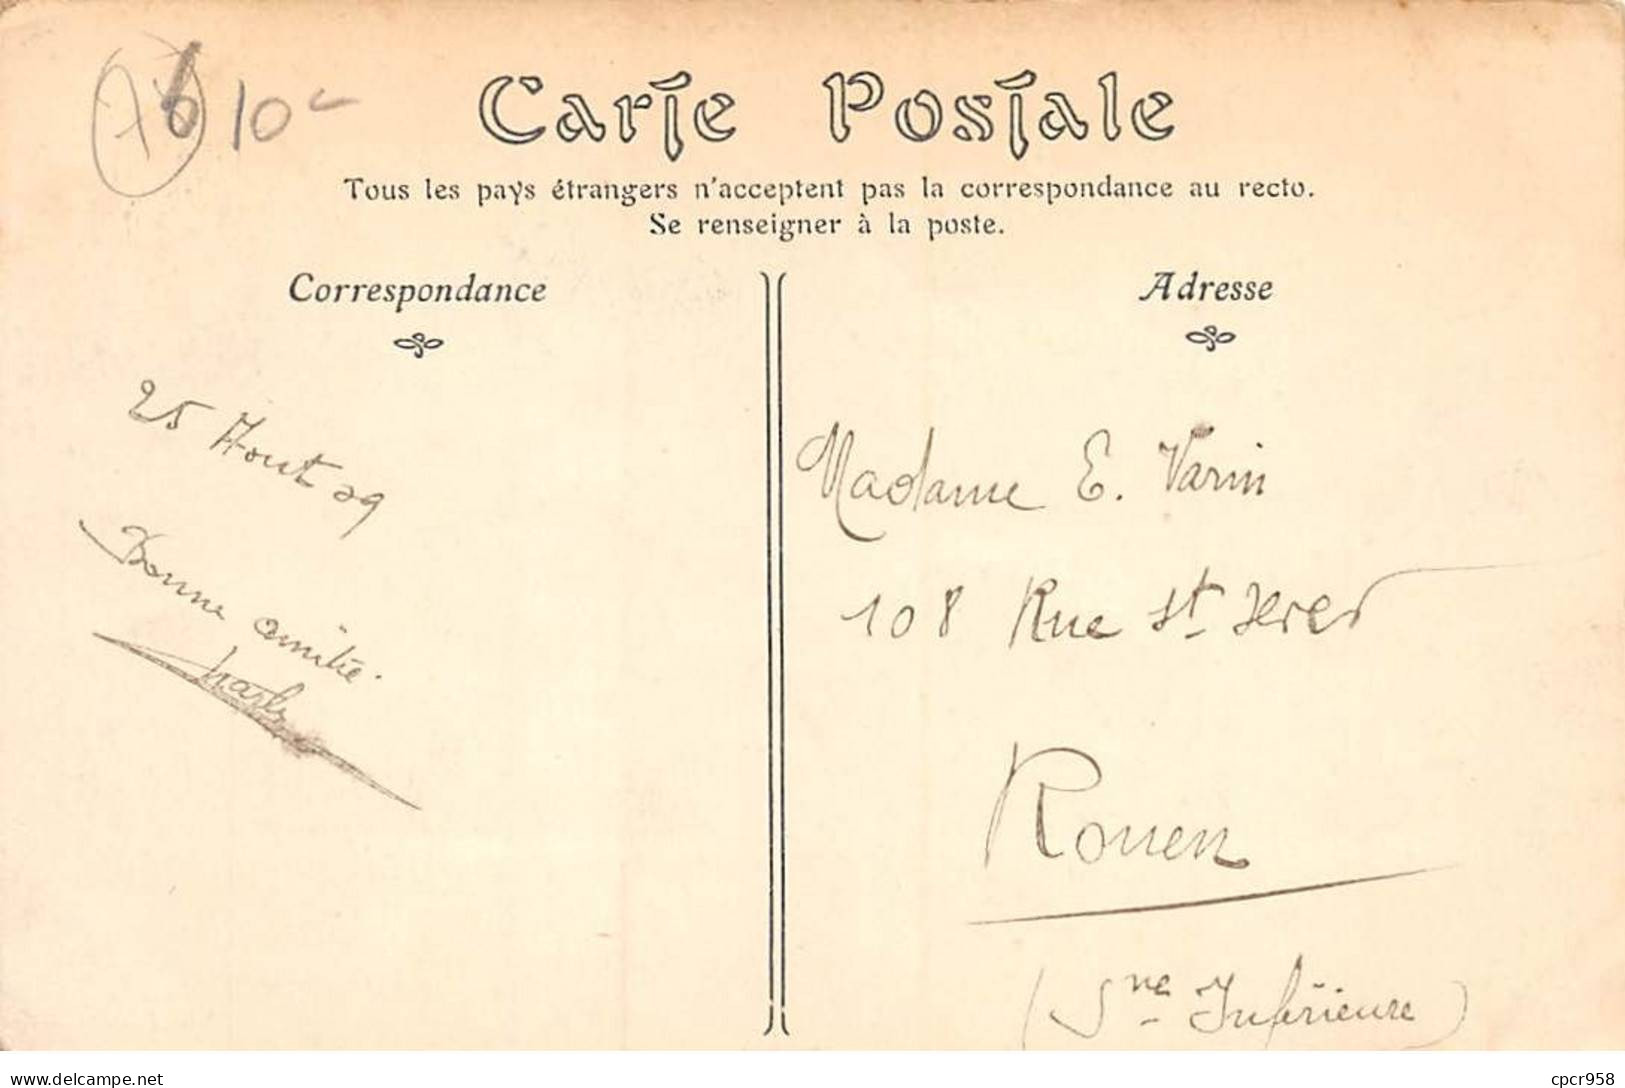 76 10
Carte Postale
Tous les pays étrangers n'acceptent pas la correspondance au recto.
Se renseigner à la poste.
Correspondance
Adresse
25 Aout 09
Bonne amitié.
Charles
Madame E. Varin
108 Rue St Sever
Rouen
(Sne Inférieure)
delcampe.net
cpcr958